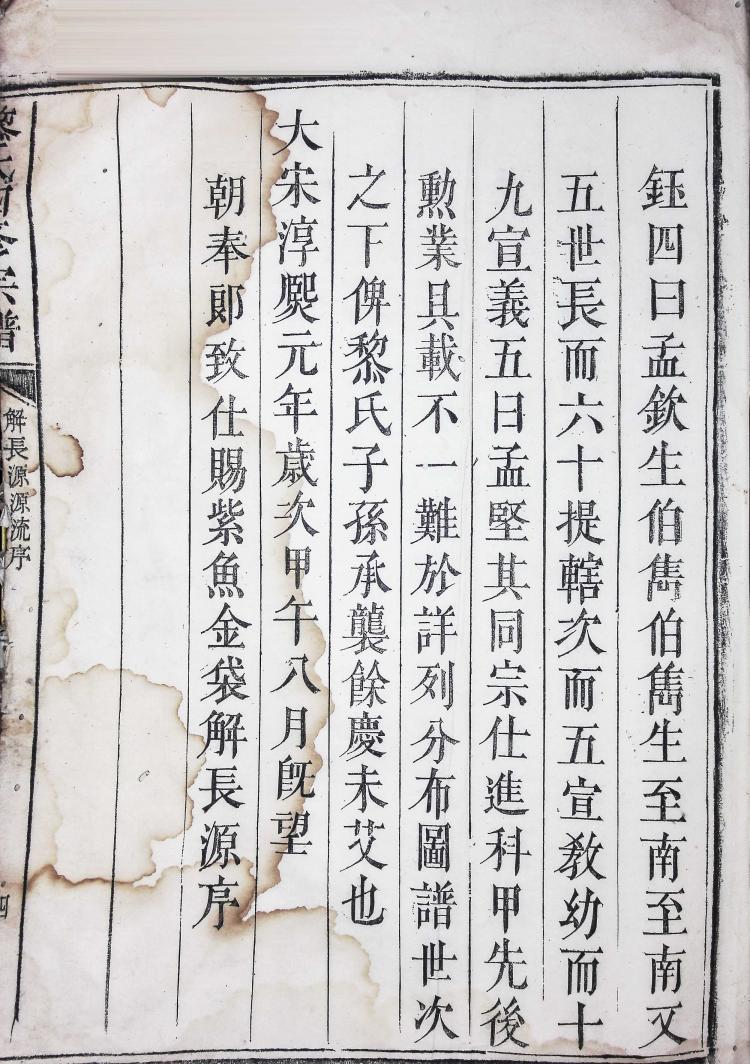 鈺四曰孟欽生伯雋伯雋生至南至南又
五世長而六十提轄次而五宣教幼而十
九宣義五曰孟堅其同宗仕進科甲先後
勲業具載不一難於詳列分布圖譜世次
之下俾黎氏子孫承襲餘慶未艾也
大宋淳熈元年歲次甲午八月旣望
朝奉郎致仕賜紫魚金袋解長源序
黎氏
宗譜
解長源源流序
四